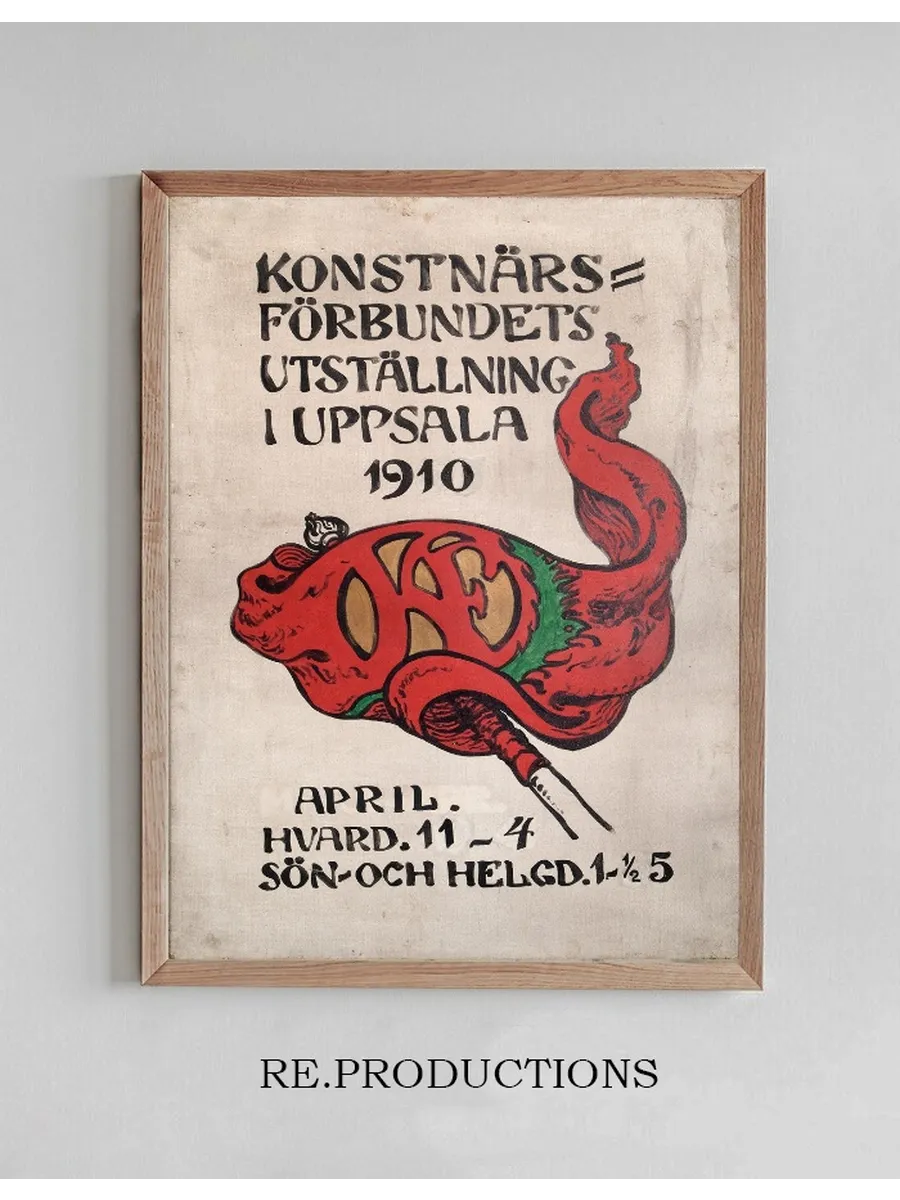 KONSTNÄRS=
FÖRBUNDETS
UTSTÄLLNING
I UPPSALA
1910
APRIL.
HVARD. 11 - 4
SÖN-OCH HELGD. 1-½ 5
RE.PRODUCTIONS